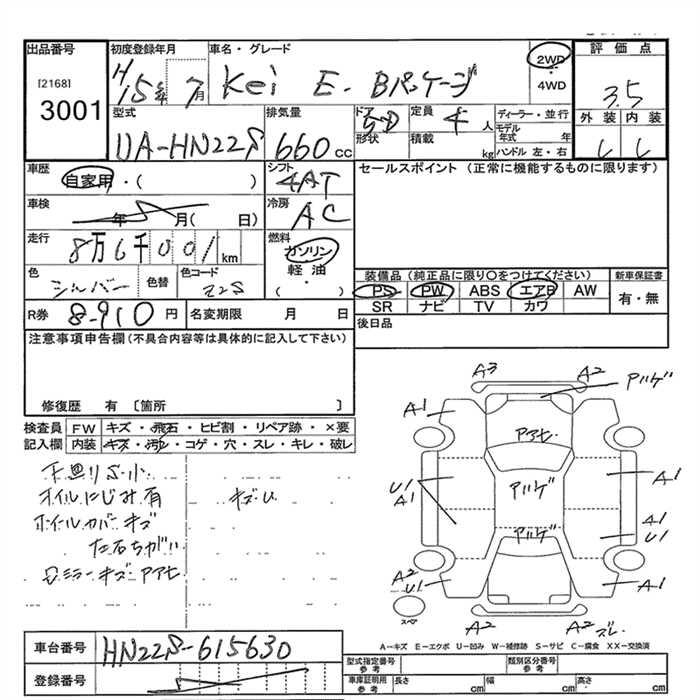 出品番号
[2168]
3001
初度登録年月
H15年7月
車名・グレード
Kei E. Bパッケージ
2WD
4WD
評価点
3.5
外装 内装
C C
型式
UA-HN22S
排気量
660cc
ドア 5D
形状
定員 4人
積載 kg
ディーラー・並行
モデル年式 年
ハンドル 左・右
車歴
自家用・( )
シフト
4AT
セールスポイント (正常に機能するものに限ります)
車検
年 月( 日)
冷房
AC
走行
8万6千001km
燃料
ガソリン
軽油
( )
色
シルバー
色替
色コード
Z2S
装備品 (純正品に限り○をつけてください)
PS PW ABS エアB AW
SR ナビ TV カワ
新車保証書
有・無
R券 8-910円
名変期限 月 日
後日品
注意事項申告欄(不具合内容等は具体的に記入して下さい)
修復歴 有 〔箇所 〕
検査員記入欄
FW キズ・飛石・ヒビ割・リペア跡・×要
内装 キズ・汚れ・コゲ・穴・スレ・キレ・破レ
下廻りS小
オイルにじみ有
キズU
ホイルカバーキズ
左右ちがい
Dミラーキズアアセ
A3 A2 アハゲ
A1
アアセ
A1
U1
A1
アハゲ
A1
U1
アハゲ
A2
U1
A1
スペア
A2 A2 ズレ
A―キズ E―エクボ U―凹み W―補修跡 S―サビ C―腐食 XX―交換済
車台番号
HN22S-615630
登録番号
型式指定番号 参考
類別区分番号 参考
車庫証明用 参考
長さ cm
幅 cm
高さ cm